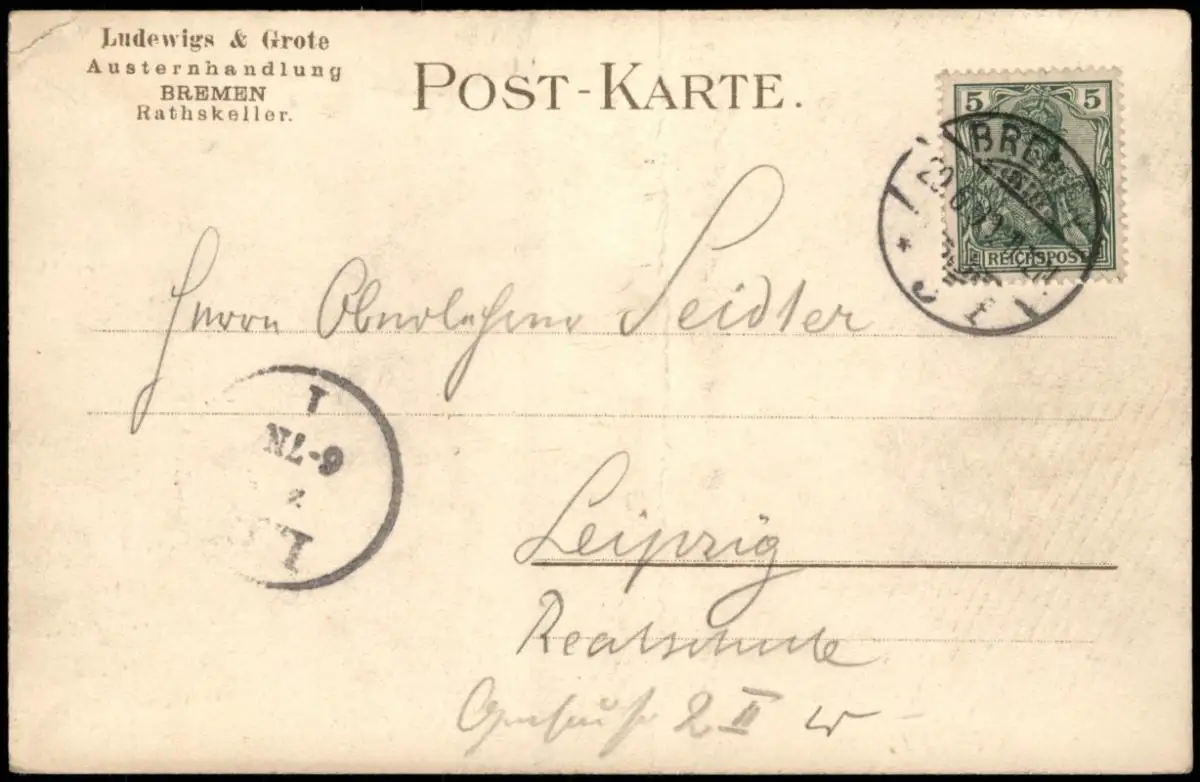 Ludewigs & Grote
Austernhandlung
BREMEN
Rathskeller.
POST-KARTE.
5 5
REICHSPOST
BREMEN
Herrn Oberlehrer Seidler
1
6-7N
L
Leipzig
Realschule
2 II